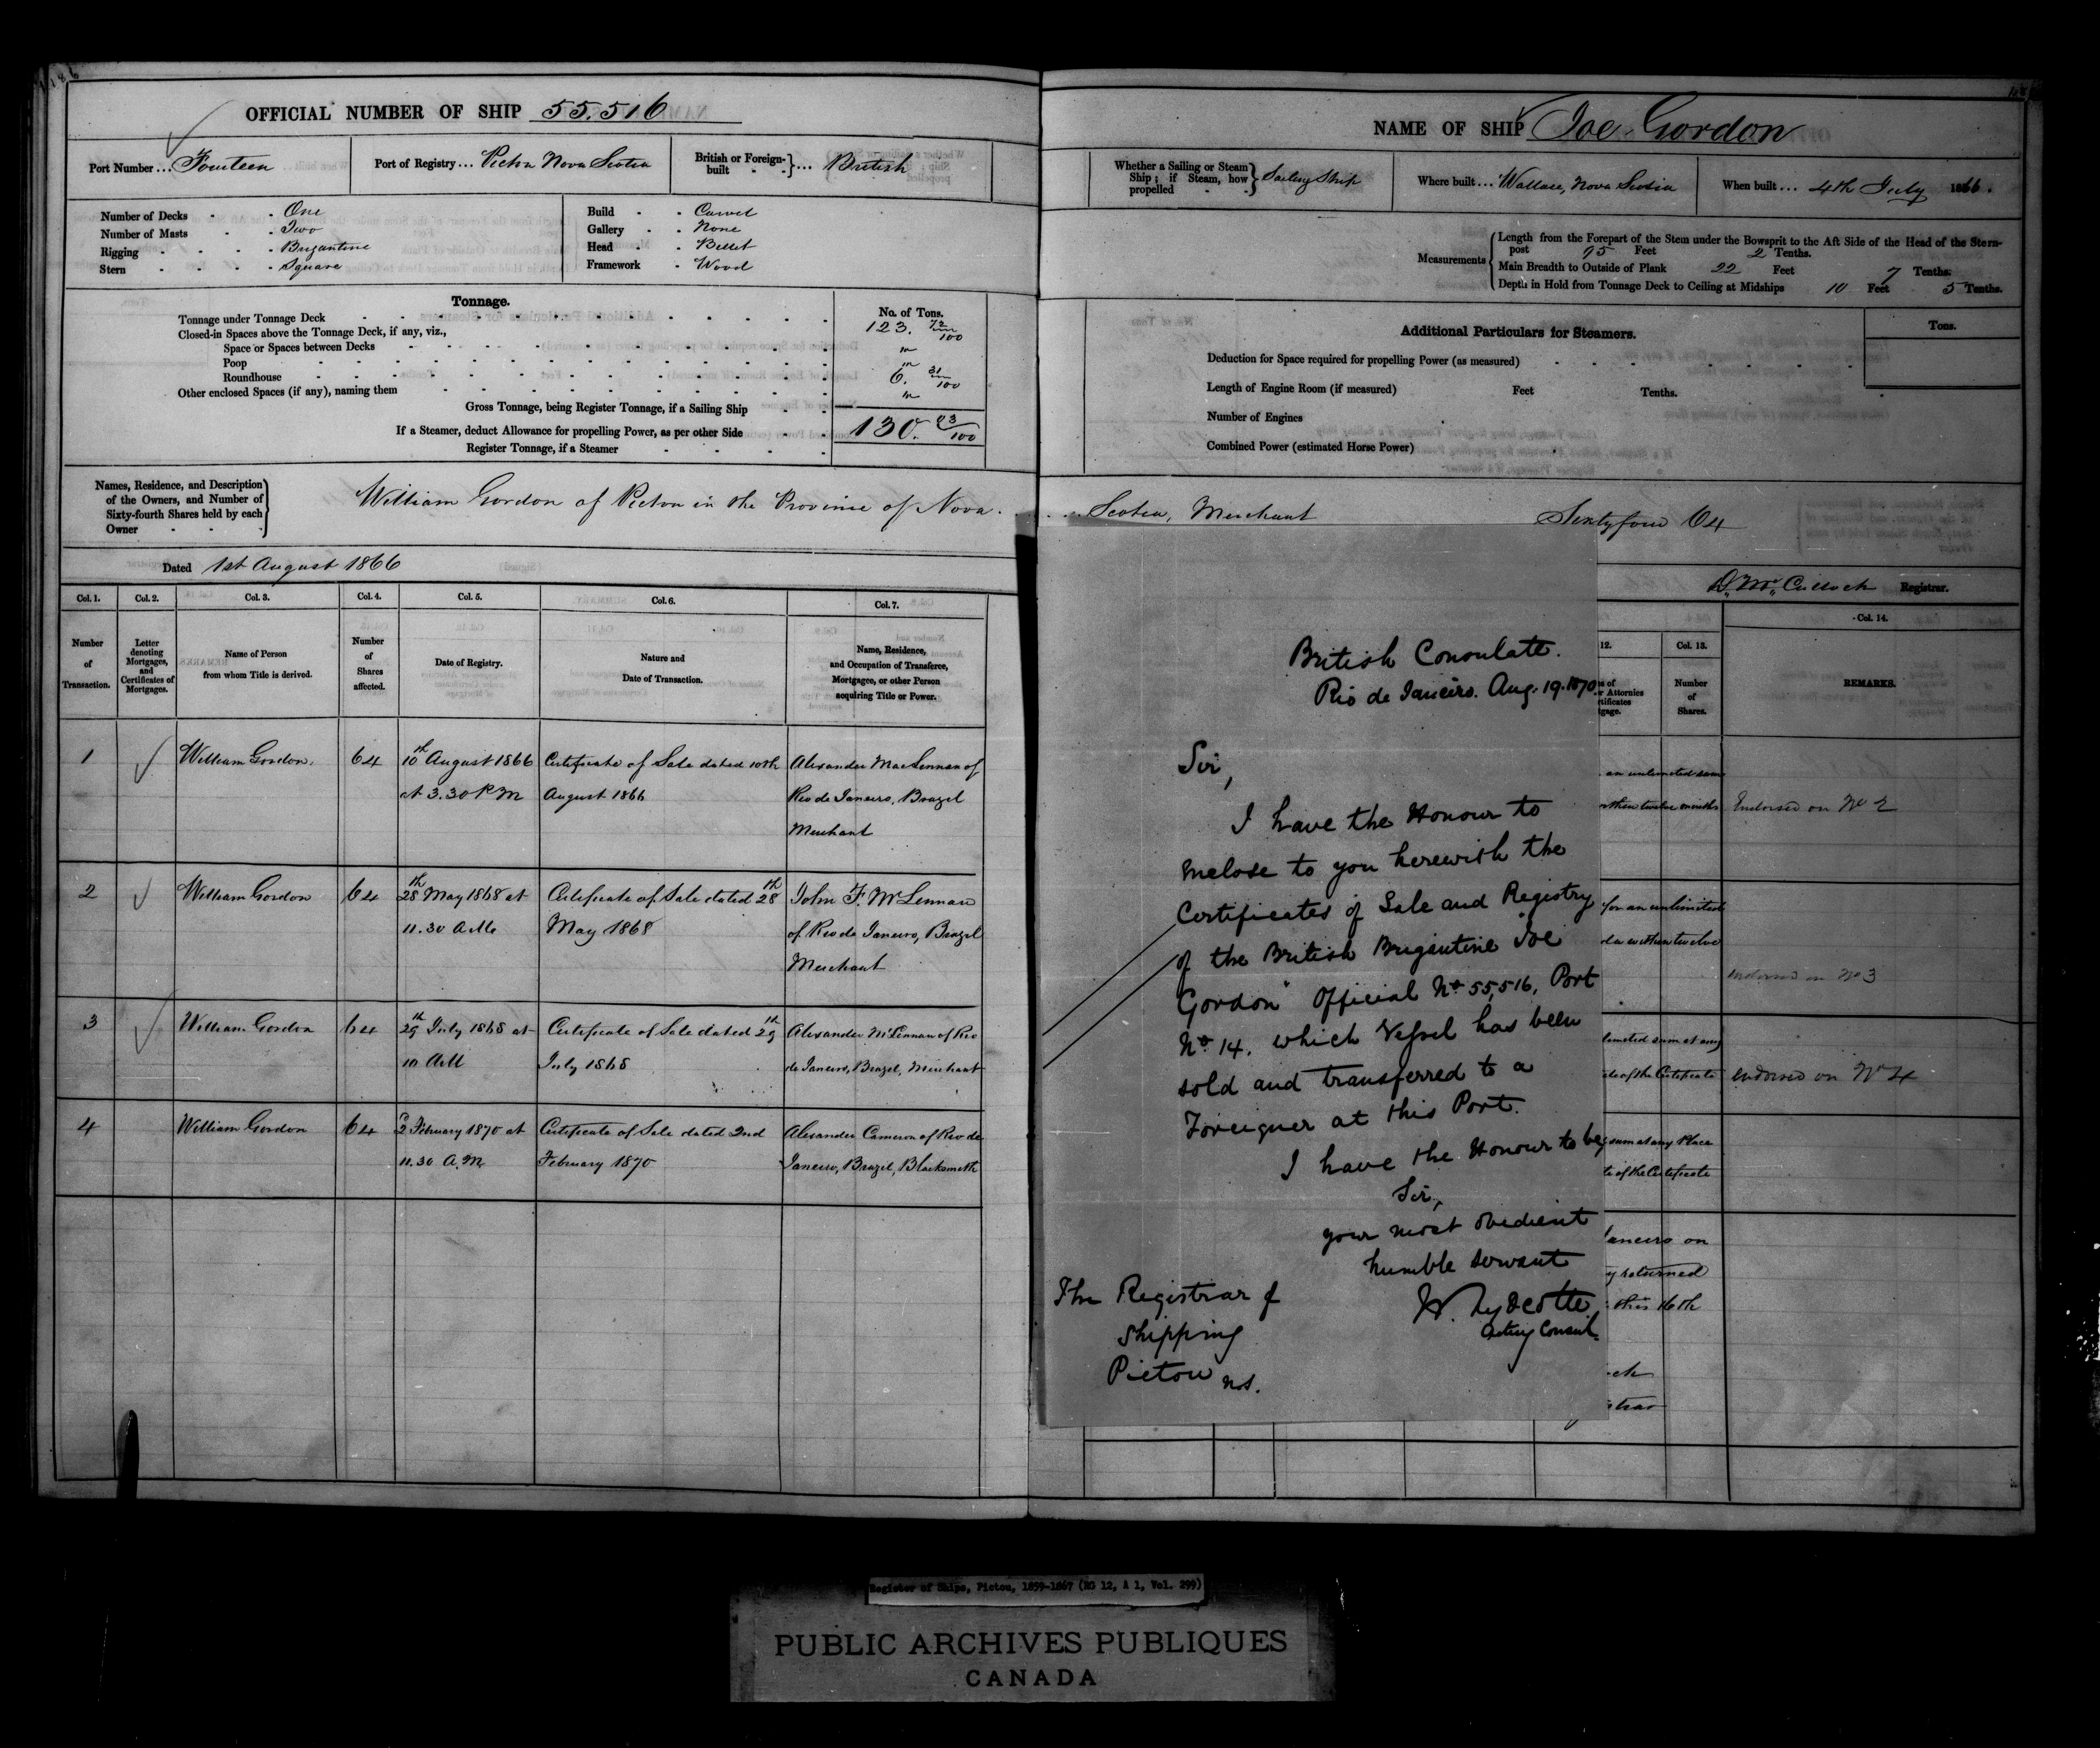 186
OFFICIAL NUMBER OF SHIP 55.516
Port Number ... Fourteen
Port of Registry ... Pictou Nova Scotia
British or Foreign-built ... British
Number of Decks - - One
Number of Masts - - Two
Rigging - - - - Brigantine
Stern - - - - Square
Build - - Carvel
Gallery - - None
Head - - Billet
Framework - Wood
Tonnage.
No. of Tons.
Tonnage under Tonnage Deck 123. 72/100
Closed-in Spaces above the Tonnage Deck, if any, viz.,
Space or Spaces between Decks "
Poop "
Roundhouse 6. 31/100
Other enclosed Spaces (if any), naming them "
Gross Tonnage, being Register Tonnage, if a Sailing Ship 130. 03/100
If a Steamer, deduct Allowance for propelling Power, as per other Side
Register Tonnage, if a Steamer
NAME OF SHIP Joe Gordon
Whether a Sailing or Steam Ship; if Steam, how propelled Sailing Ship
Where built ... Wallace, Nova Scotia
When built ... 4th July 1866.
Measurements
Length from the Forepart of the Stem under the Bowsprit to the Aft Side of the Head of the Stern-
post 95 Feet 2 Tenths.
Main Breadth to Outside of Plank 22 Feet 7 Tenths.
Depth in Hold from Tonnage Deck to Ceiling at Midships 10 Feet 5 Tenths.
Additional Particulars for Steamers.
Tons.
Deduction for Space required for propelling Power (as measured)
Length of Engine Room (if measured) Feet Tenths.
Number of Engines
Combined Power (estimated Horse Power)
Names, Residence, and Description
of the Owners, and Number of
Sixty-fourth Shares held by each
Owner
William Gordon of Pictou in the Province of Nova Scotia, Merchant Sixty four 64
Dated 1st August 1866
D. McCulloch Registrar.
Col. 1. Col. 2. Col. 3. Col. 4. Col. 5. Col. 6. Col. 7.
Number of Transaction.
Letter denoting Mortgages, and Certificates of Mortgages.
Name of Person from whom Title is derived.
Number of Shares affected.
Date of Registry.
Nature and Date of Transaction.
Name, Residence, and Occupation of Transferee, Mortgagee, or other Person acquiring Title or Power.
1 William Gordon. 64 10th August 1866 Certificate of Sale dated 10th Alexander MacLennan of
at 3.30 P.M August 1866 Rio de Janeiro, Brazil
Merchant
2 William Gordon 64 28th May 1868 at Certificate of Sale dated 28th John F. McLennan
11.30 A.M. May 1868 of Rio de Janeiro, Brazil
Merchant
3 William Gordon 64 29th July 1868 at Certificate of Sale dated 29th Alexander McLennan of Rio
10 A.M July 1868 de Janeiro, Brazil, Merchant
4 William Gordon 64 2d February 1870 at Certificate of Sale dated 2nd Alexander Cameron of Rio de
11.30 A.M. February 1870 Janeiro, Brazil, Blacksmith
British Consulate.
Rio de Janeiro. Aug. 19. 1870
Sir,
I have the Honour to
enclose to you herewith the
Certificates of Sale and Registry
of the British Brigantine "Joe
Gordon" Official No. 55,516, Port
No. 14. which Vessel has been
sold and transferred to a
Foreigner at this Port.
I have the Honour to be,
Sir,
your most obedient
humble servant
Acting Consul
The Registrar of
Shipping
Pictou N.S.
12. Col. 13. Col. 14.
Attornies
Number of Shares.
REMARKS.
an unlimited sum
within twelve months Endorsed on No 2
for an unlimited
within twelve
endorsed on No 3
sum at any
of the Certificate endorsed on No 4
sum at any Place
of the Certificate
Janeiro on
returned
this 16th
Register of Ships, Pictou, 1859-1867 (RG 12, A 1, Vol. 299)
PUBLIC ARCHIVES PUBLIQUES
CANADA